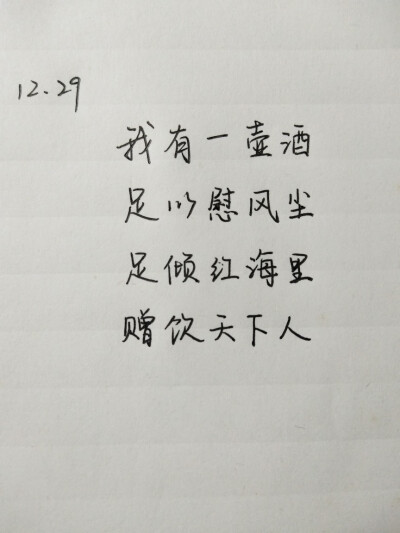 12.29
我有一壶酒
足以慰风尘
足倾红海里
赠饮天下人